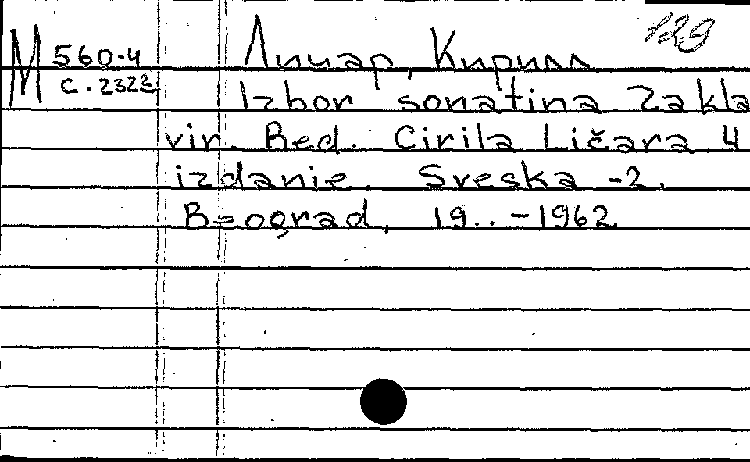 129
М 560-4
с. 2323
Личар, Кирилл
Izbor sonatina za kla
vir. Red. Cirila Ličara 4
izdanie. Sveska -2.
Beograd, 19..-1962